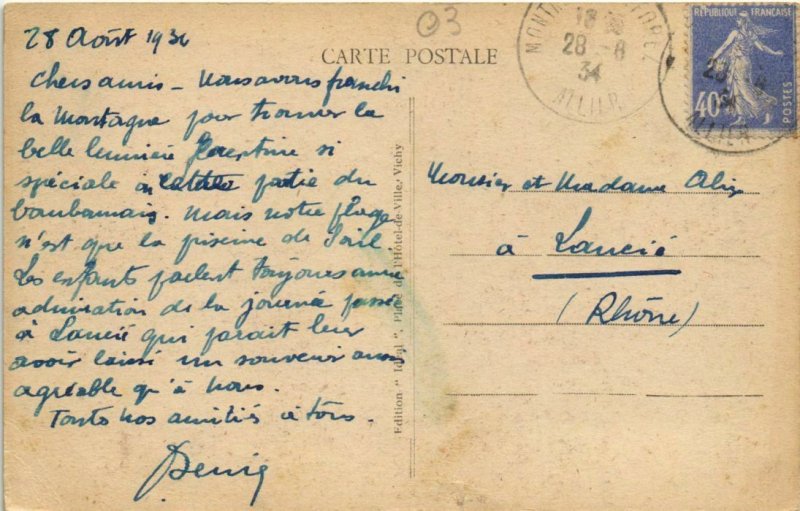 28 Août 1934
03
CARTE POSTALE
MONT
18
28 - 8
34
ALLIER
RÉPUBLIQUE FRANÇAISE
40
POSTES
28 - 8
34
ALLIER
Chers amis - Nous avons franchi
la Montagne pour trouver la
belle lumière florentine si
spéciale à cette partie du
bourbonnais. Mais notre plage
n'est que la piscine de
Les enfants parlent toujours avec
admiration de la journée passée
à Lancié qui parait leur
avoir laissé un souvenir aussi
agréable qu'à nous.
Toutes nos amitiés à tous.
Denis
Edition " Idéal ", Place de l'Hôtel-de-Ville, Vichy
Monsieur et Madame
à Lancié
(Rhône)